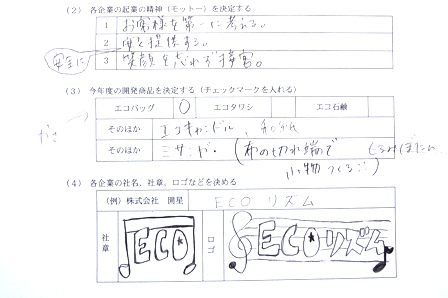 (2) 各企業の起業の精神(モットー)を決定する
1 お客様を第一に考える。
2 を提供する。
安全に 3 笑顔を忘れず接客。
(3) 今年度の開発商品を決定する(チェックマークを入れる)
エコバッグ ○ エコタワシ エコ石鹸
そのほか エコキャンドル、
そのほか ミサンガ・(布の切れ端で
小物つくる
(4) 各企業の社名、社章、ロゴなどを決める
(例)株式会社 開星 ECOリズム
社章 ECO ロゴ ECOリズム